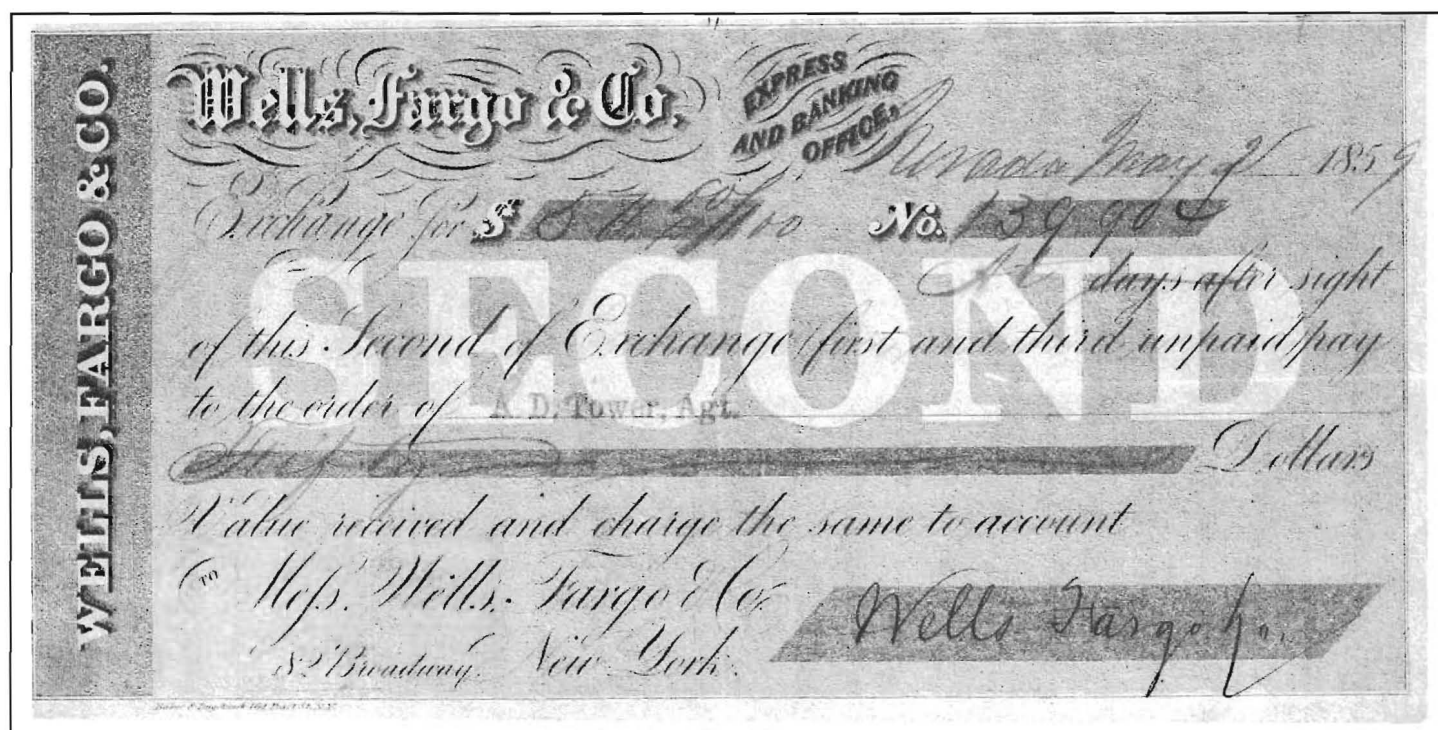 WELLS, FARGO & CO.
Wells, Fargo & Co.
EXPRESS
AND BANKING
OFFICE,
Nevada May 1859
Exchange for $ No.
SECOND
At days after sight
of this Second of Exchange (first and third unpaid) pay
to the order of A. D. Tower, Agt.
Fifty Dollars
Value received and charge the same to account
TO Mess. Wells, Fargo & Co.
82 Broadway, New York.
Wells Fargo & Co.